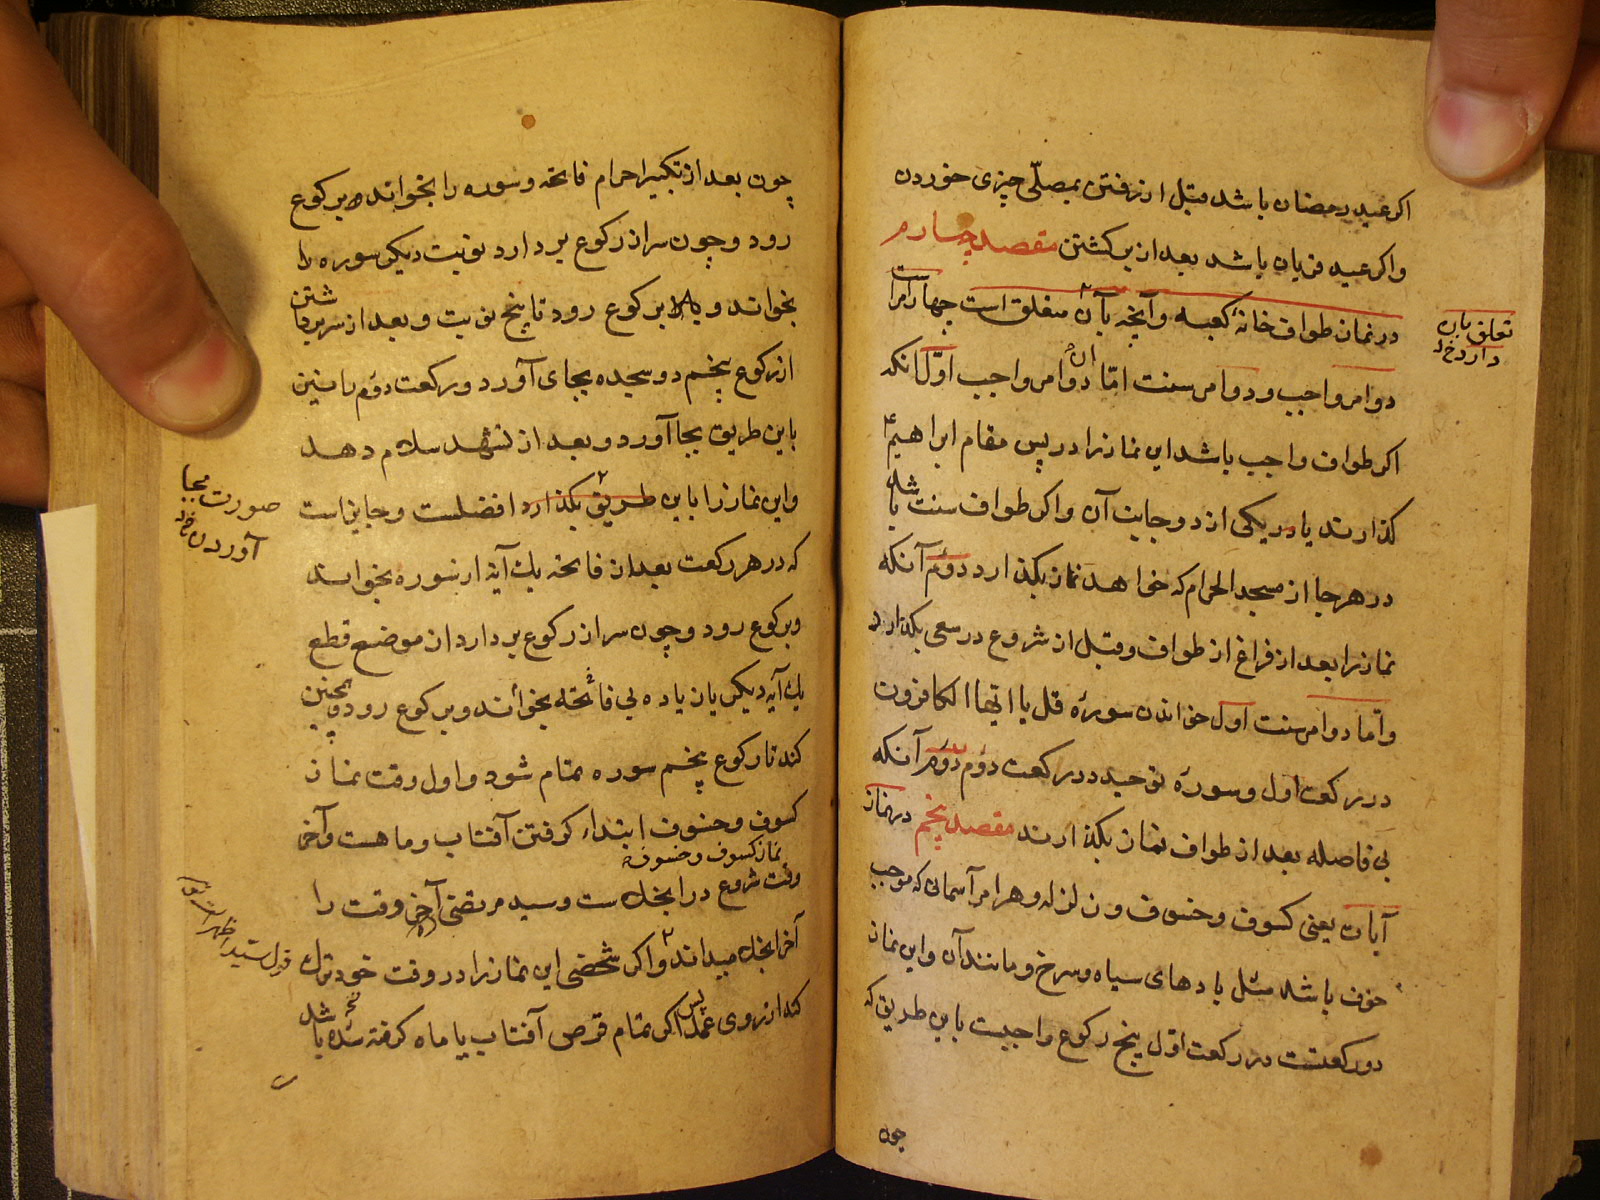 اکر عید رمضان باشد قبل از رفتن بمصلّی چیزی خوردن
و اکر عید قربان باشد بعد از برکشتن مقصد چهارم
در نماز طواف خانۀ کعبه و آنچه بآن متعلق است چهار امراست
تعلق بآن
دارد خ‌ل
دو امر واجب و دو امر سنت امّا آن دو امر واجب اوّل آنکه
اکر طواف واجب باشد این نماز را در پس مقام ابراهیم
کذارند یا در یکی از دو جانب آن و اکر طواف سنت باشد
در هر جا از مسجد الحرام که خواهد نماز بکذارد دوّم آنکه
نماز را بعد از فراغ از طواف و قبل از شروع در سعی بکذارد
و امّا دو امر سنت اول خواندن سورۀ قل یا ایها الکافرون
در رکعت اول و سورۀ توحید در رکعت دوم دوّم آنکه
بی فاصله بعد از طواف نماز بکذارند مقصد پنجم در نماز
آیات یعنی کسوف و خسوف و زلزله و هر امر آسمانی که موجب
خوف باشد مثل بادهای سیاه و سرخ و مانند آن و این نماز
دو رکعتست در رکعت اوّل پنج رکوع واجبست باین طریق که
چون
چون بعد از تکبیر احرام فاتحه و سوره را بخواند و برکوع
رود و چون سر از رکوع بردارد نوبت دیکر سوره را
بخواند و برکوع رود تا پنج نوبت و بعد از سر برداشتن
از رکوع پنجم دو سجده بجای آورد و رکعت دوّم را نیز
باین طریق بجا آورد و بعد از تشهد سلام دهد
و این نماز را باین طریق بکذارد افضلست و جایز است
صورت بجا
آوردن
که در هر رکعت بعد از فاتحه یک آیه از سوره بخواند
و برکوع رود و چون سر از رکوع بردارد از موضع قطع
یک آیه دیکر یا زیاده بی فاتحه بخواند و برکوع رود و همچنین
کند تا رکوع پنجم سوره تمام شود و اول وقت نماز
کسوف و خسوف ابتداء کرفتن آفتاب و ماهست و آخر
نماز کسوف و خسوف
وقت شروع در انجلاست و سید مرتضی آخر وقت را
آخر انجلا میداند و اکر شخصی این نماز را در وقت خود ترک
قول سید اظهر است
کند از روی عمد پس اکر تمام قرص آفتاب یا ماه کرفته شده باشد